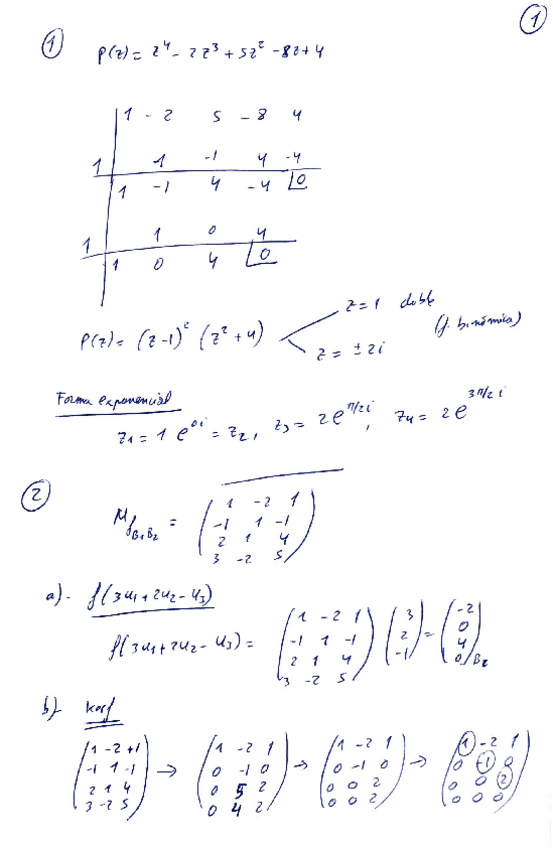 ①
① P(z) = z⁴ - 2z³ + 5z² - 8z + 4
1 - 2 5 - 8 4
1 1 -1 4 -4
1 -1 4 -4 0
1 1 0 4
1 0 4 0
P(z) = (z-1)² (z² + 4)
z = 1 doble
(f. binómica)
z = ± 2i
Forma exponencial
z₁ = 1 e^{0i} = z₂, z₃ = 2e^{π/2 i}, z₄ = 2e^{3π/2 i}
②
M_{f B₁B₂} = ( 1 -2 1
-1 1 -1
2 1 4
3 -2 5 )
a). f(3u₁+2u₂-u₃)
f(3u₁+2u₂-u₃) = ( 1 -2 1
-1 1 -1
2 1 4
3 -2 5 ) ( 3
2
-1 ) = ( -2
0
4
0 )_{B₂}
b) Kerf
( 1 -2 +1
-1 1 -1
2 1 4
3 -2 5 ) → ( 1 -2 1
0 -1 0
0 5 2
0 4 2 ) → ( 1 -2 1
0 -1 0
0 0 2
0 0 2 ) → ( 1 -2 1
0 -1 0
0 0 2
0 0 0 )